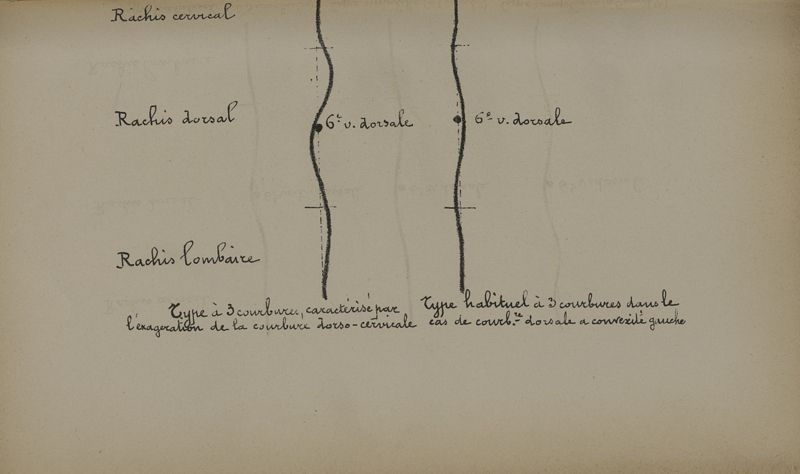 Rachis cervical
Rachis dorsal
6e v. dorsale
6e v. dorsale
Rachis lombaire
Type à 3 courbures, caractérisé par
l'exagération de la courbure dorso-cervicale
Type habituel à 3 courbures dans le
cas de courb.re dorsale a convexité gauche